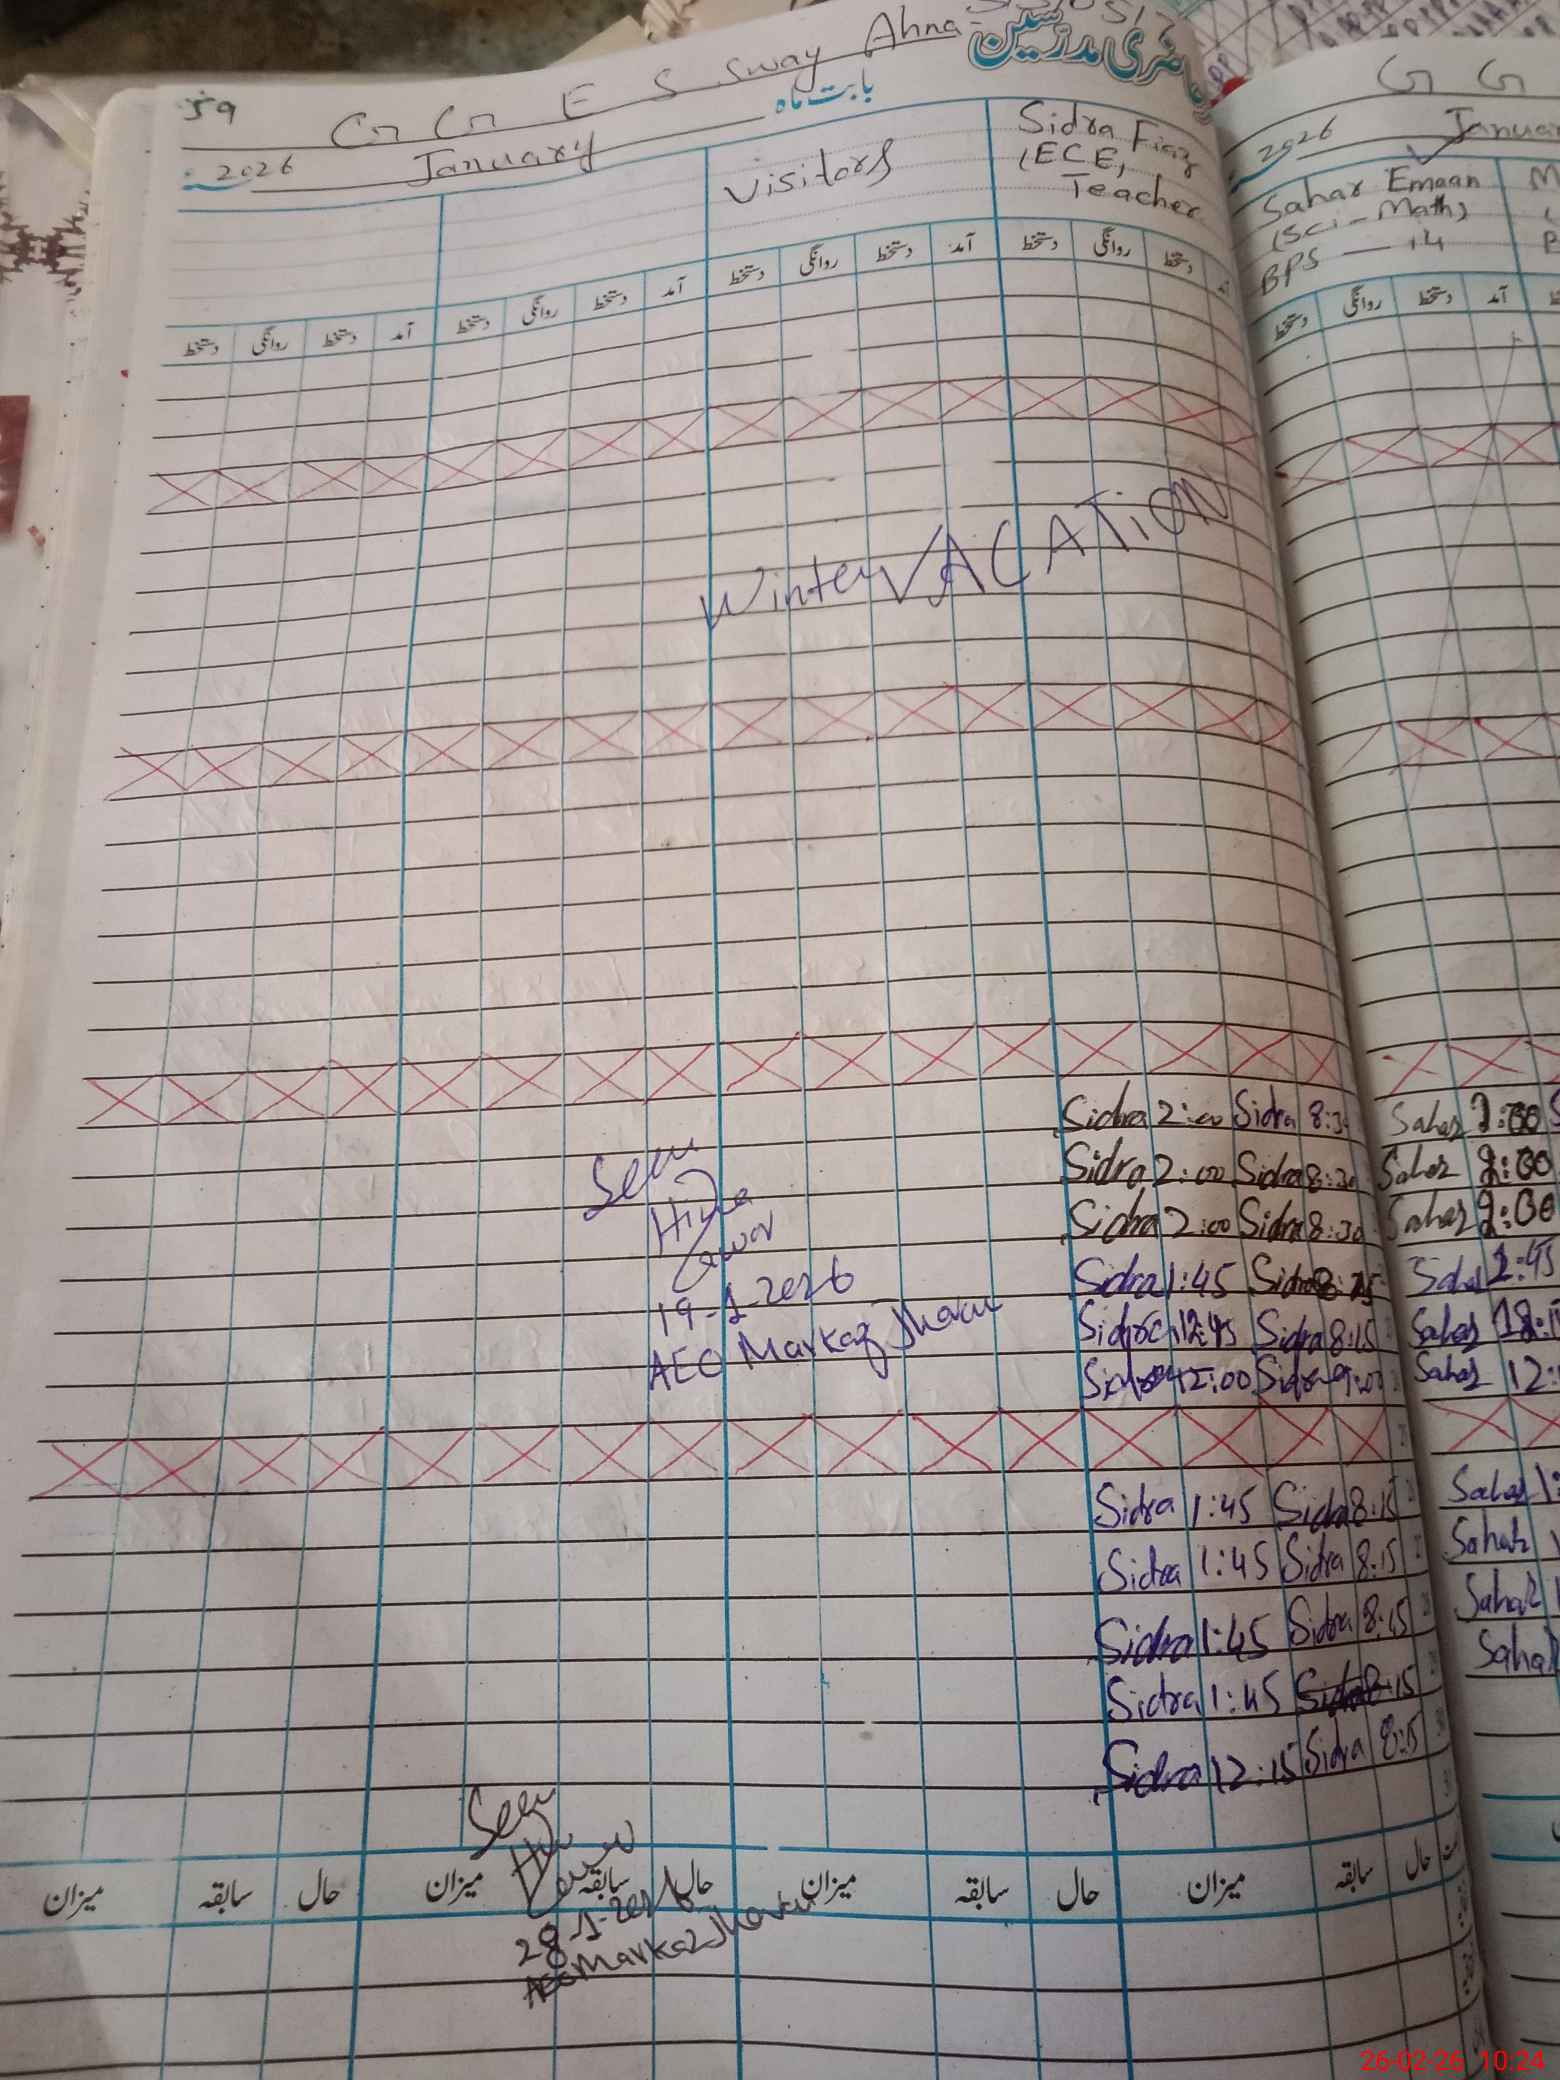 59
G G E S Sway Ahna
حاضری مدرسین
بابت ماہ
2026 January
Visitors
Sidra Fiaz
(ECE)
Teacher
دستخط روانگی دستخط آمد دستخط روانگی دستخط آمد دستخط روانگی دستخط آمد دستخط روانگی دستخط
Winter VACATiON
Sidra 2:00 Sidra 8:30
Sidra 2:00 Sidra 8:30
Sidra 2:00 Sidra 8:30
Sidra 1:45 Sidra 8:15
Sidra 12:45 Sidra 8:15
Sidra 12:00 Sidra 9:00
Seen
Hina
19-1-2026
AEO Markaz
Sidra 1:45 Sidra 8:15
Sidra 1:45 Sidra 8:15
Sidra 1:45 Sidra 8:15
Sidra 1:45 Sidra 8:15
Sidra 12:15 Sidra 8:15
Seen
28-1-2026
AEO Markaz
میزان سابقہ حال میزان سابقہ حال میزان سابقہ حال میزان سابقہ حال
G G
2026 January
Sahar Emaan
(Sci-Math)
BPS - 14
دستخط روانگی دستخط آمد
Sahar 2:00
Sahar 2:00
Sahar 2:00
Sahar 1:45
Sahar
Sahar 12:
Sahar 1:
Sahar
Sahar
Sahar
26-02-26 10:24